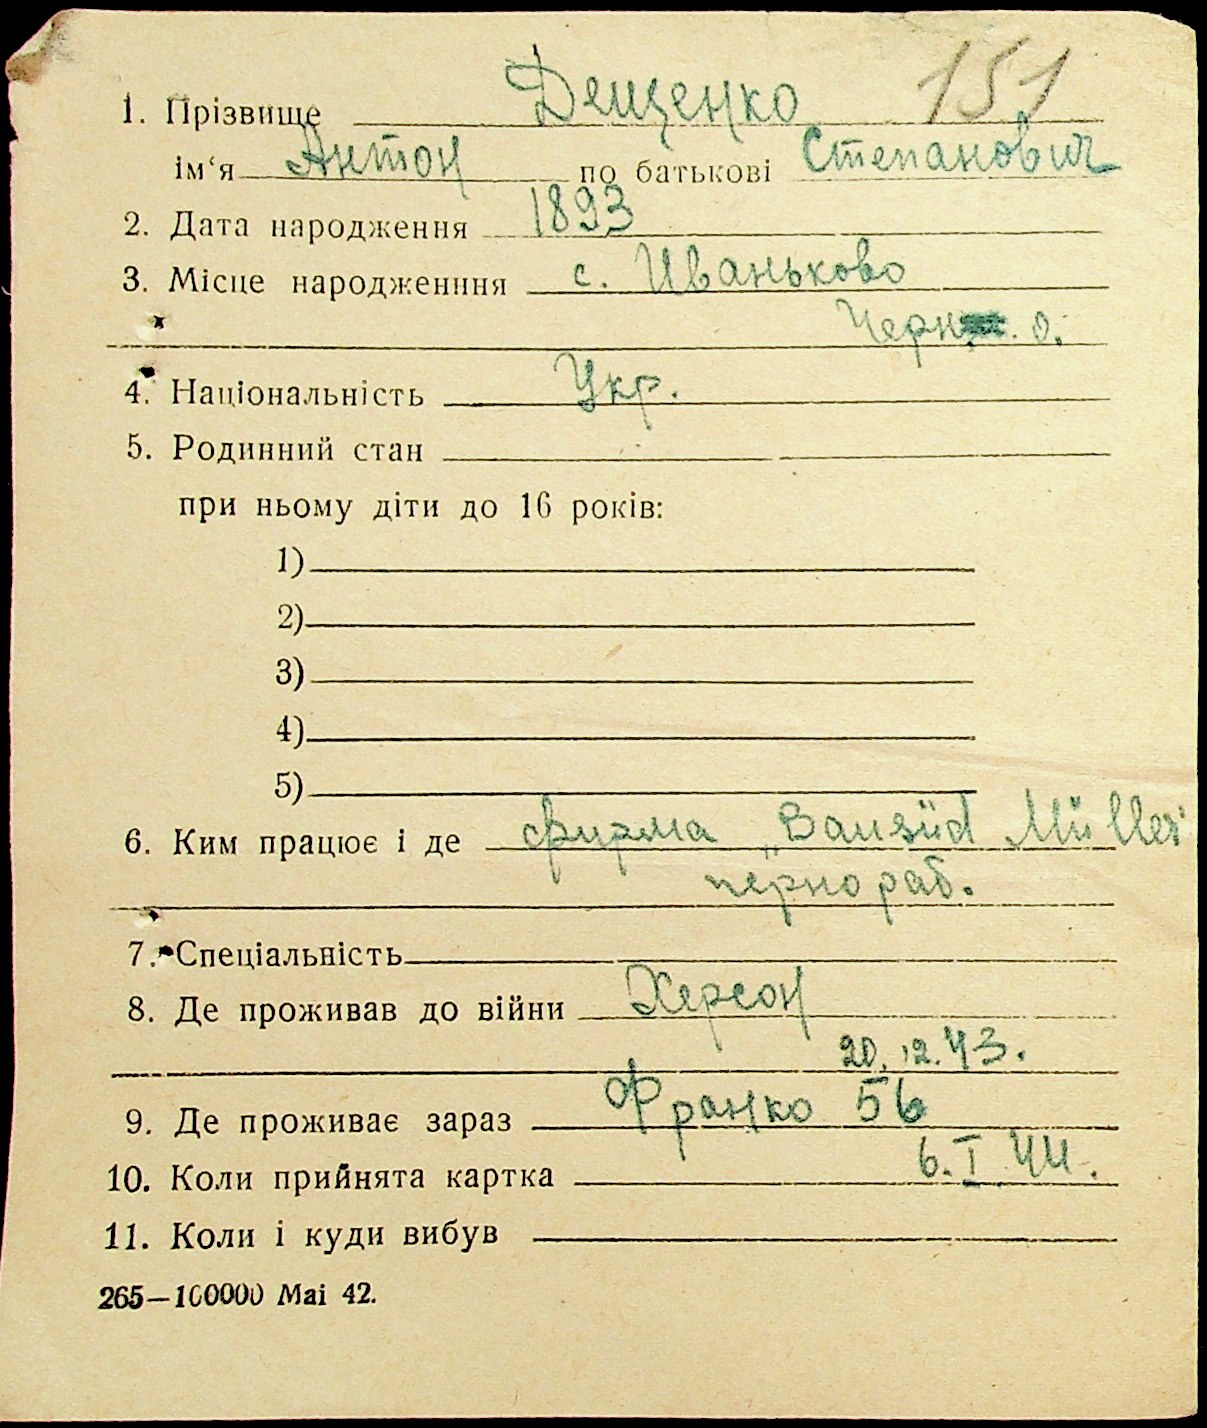 151
1. Прізвище Дещенко
ім‘я Антон по батькові Степанович
2. Дата народження 1893
3. Місце народженння с. Иваньково
Черн. о.
4. Національність Укр.
5. Родинний стан
при ньому діти до 16 років:
1)
2)
3)
4)
5)
6. Ким працює і де фирма „Bausüd Müller"
чернораб.
7. Спеціальність
8. Де проживав до війни Херсон
20.12.43.
9. Де проживає зараз Франко 56
10. Коли прийнята картка 6.I 44.
11. Коли і куди вибув
265—100000 Mai 42.